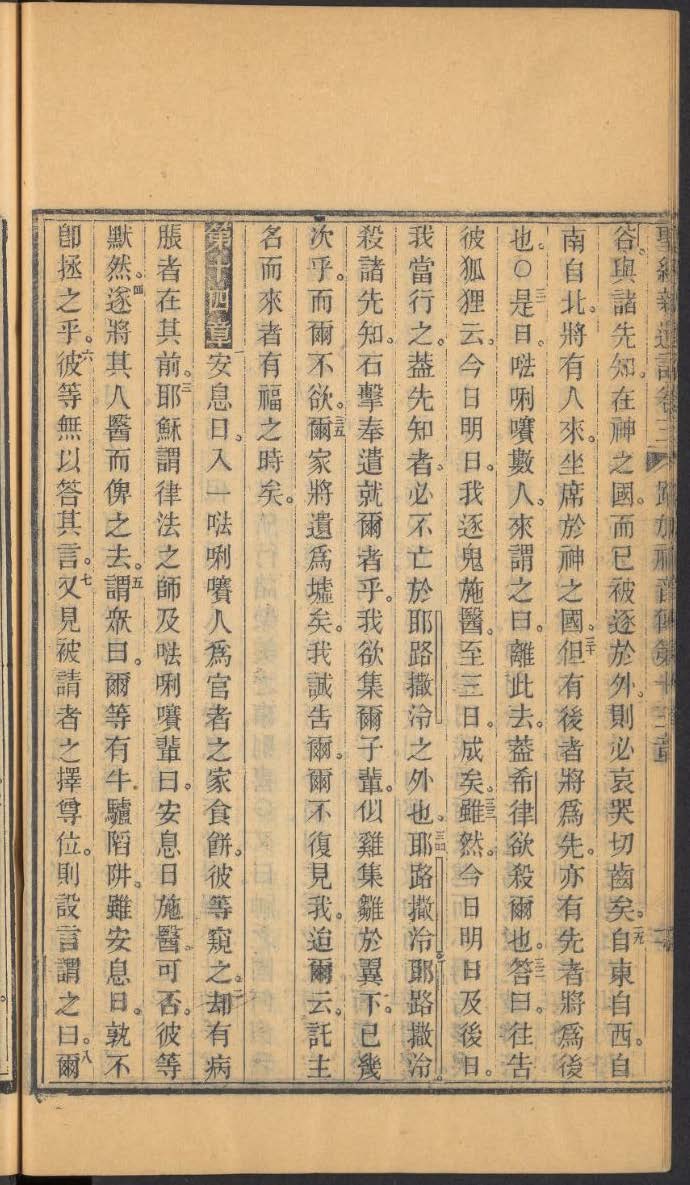 聖經新遺詔卷三 路加福音傳第十三章
谷。與諸先知。在神之國。而已被逐於外。則必哀哭切齒矣。二九自東自西。自
南自北。將有人來。坐席於神之國。三十但有後者將爲先。亦有先者將爲後
也。○三一是日。𠵽唎㘔數人。來謂之曰。離此去。葢希律欲殺爾也。三二答曰。往吿
彼狐狸云。今日明日。我逐鬼施醫。至三日。成矣。三三雖然。今日明日及後日。
我當行之。葢先知者。必不亡於耶路撒冷之外也。三四耶路撒冷。耶路撒冷。
殺諸先知。石擊奉遣就爾者乎。我欲集爾子輩。似雞集雛於翼下。已幾
次乎。而爾不欲。三五爾家將遺爲墟矣。我誠吿爾。爾不復見我。迨爾云。託主
名而來者有福之時矣。
第十四章 一安息日。入一𠵽唎㘔人爲官者之家食餅。彼等窺之。二却有病
脹者在其前。三耶穌謂律法之師及𠵽唎㘔輩曰。安息日施醫可否。彼等
默然。四遂將其人醫而俾之去。五謂衆曰。爾等有牛驢陷阱。雖安息日。孰不
卽拯之乎。六彼等無以答其言。七又見被請者之擇尊位。則設言謂之曰。八爾